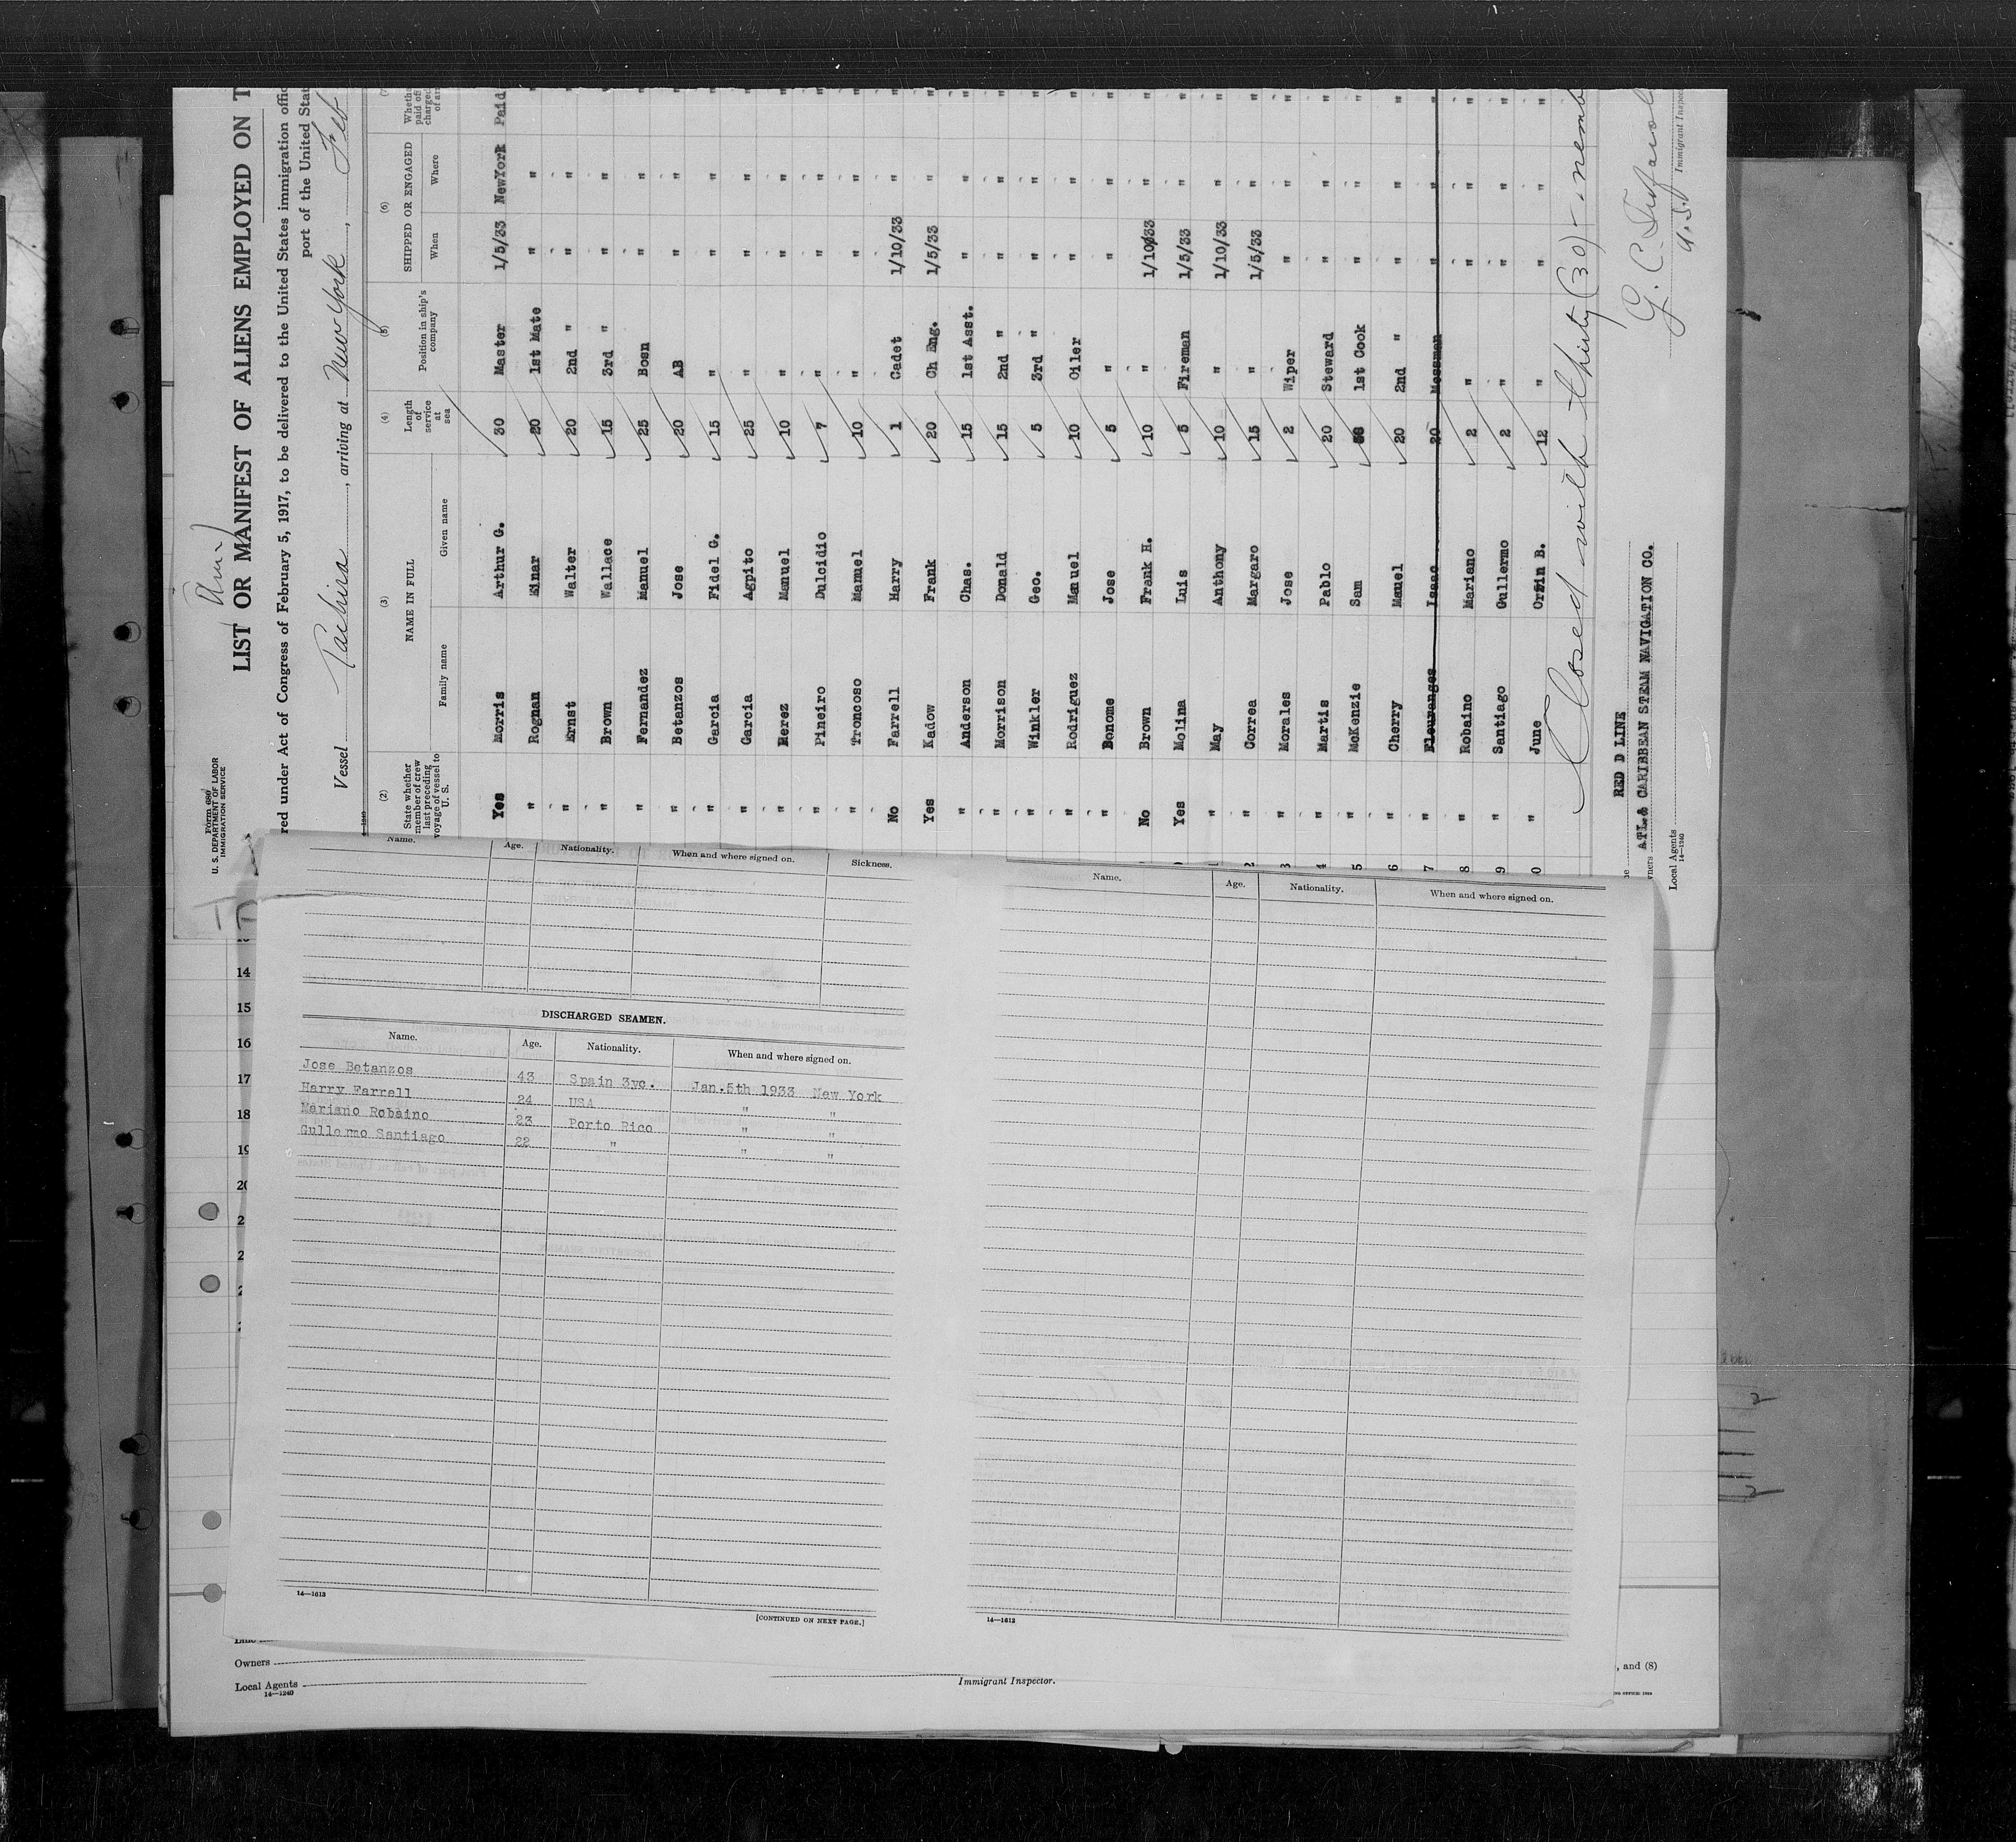 (Am.)
Form 680
U. S. DEPARTMENT OF LABOR
IMMIGRATION SERVICE
LIST OR MANIFEST OF ALIENS EMPLOYED ON T
red under Act of Congress of February 5, 1917, to be delivered to the United States immigration offic
port of the United Stat
Vessel Tachira, arriving at New York, Feb
14—1240
(2) (3) (4) (5) (6) (7)
State whether member of crew last preceding voyage of vessel to U. S. NAME IN FULL Length of service at sea Position in ship's company SHIPPED OR ENGAGED Whethe paid off charged of arr
Family name Given name When Where
Yes Morris Arthur G. 30 Master 1/5/33 NewYork Paid
" Rognan Einar 20 1st Mate " " "
" Ernst Walter 20 2nd " " " "
" Brown Wallace 15 3rd " " " "
" Fernandez Manuel 25 Bosn " " "
" Betanzos Jose 20 AB " " "
" Garcia Fidel G. 15 " " " "
" Garcia Agpito 25 " " " "
" Perez Manuel 10 " " " "
" Pineiro Dulcidio 7 " " " "
" Troncoso Manuel 10 " " " "
No Farrell Harry 1 Cadet 1/10/33 " "
Yes Kadow Frank 20 Ch Eng. 1/5/33 " "
" Anderson Chas. 15 1st Asst. " " "
" Morrison Donald 15 2nd " " " "
" Winkler Geo. 5 3rd " " " "
" Rodriguez Manuel 10 Oiler " " "
" Bonome Jose 5 " " " "
No Brown Frank H. 10 " 1/10/33 " "
Yes Molina Luis 5 Fireman 1/5/33 " "
1 " May Anthony 10 " 1/10/33 " "
2 " Correa Margaro 15 " 1/5/33 " "
3 " Morales Jose 2 Wiper " " "
4 " Martis Pablo 20 Steward " " "
5 " McKenzie Sam 1st Cook " " "
6 " Cherry Mauel 20 2nd " " " "
7 " Fleuranges Isaac 20 Messman " " "
8 " Robaino Mariano 2 " " " "
9 " Santiago Gullermo 2 " " " "
0 " June Orfin B. 12 " " " "
Closed with thirty (30) - memb
RED D LINE
wners ATL.& CARIBBEAN STEAM NAVIGATION CO.
Local Agents
14—1240
G. C.
U. S. Immigrant Inspec
Name. Age. Nationality. When and where signed on. Sickness.
DISCHARGED SEAMEN.
Name. Age. Nationality. When and where signed on.
Jose Betanzos 43 Spain 3yc. Jan.5th 1933 New York
Harry Farrell 24 USA " "
Mariano Robaino 23 Porto Rico " "
Gullermo Santiago 22 " " "
14—1613
[CONTINUED ON NEXT PAGE.]
Name. Age. Nationality. When and where signed on.
14—1613
14
15
16
17
18
19
20
2
2
2
Owners
Local Agents
14—1240
Immigrant Inspector.
, and (8)